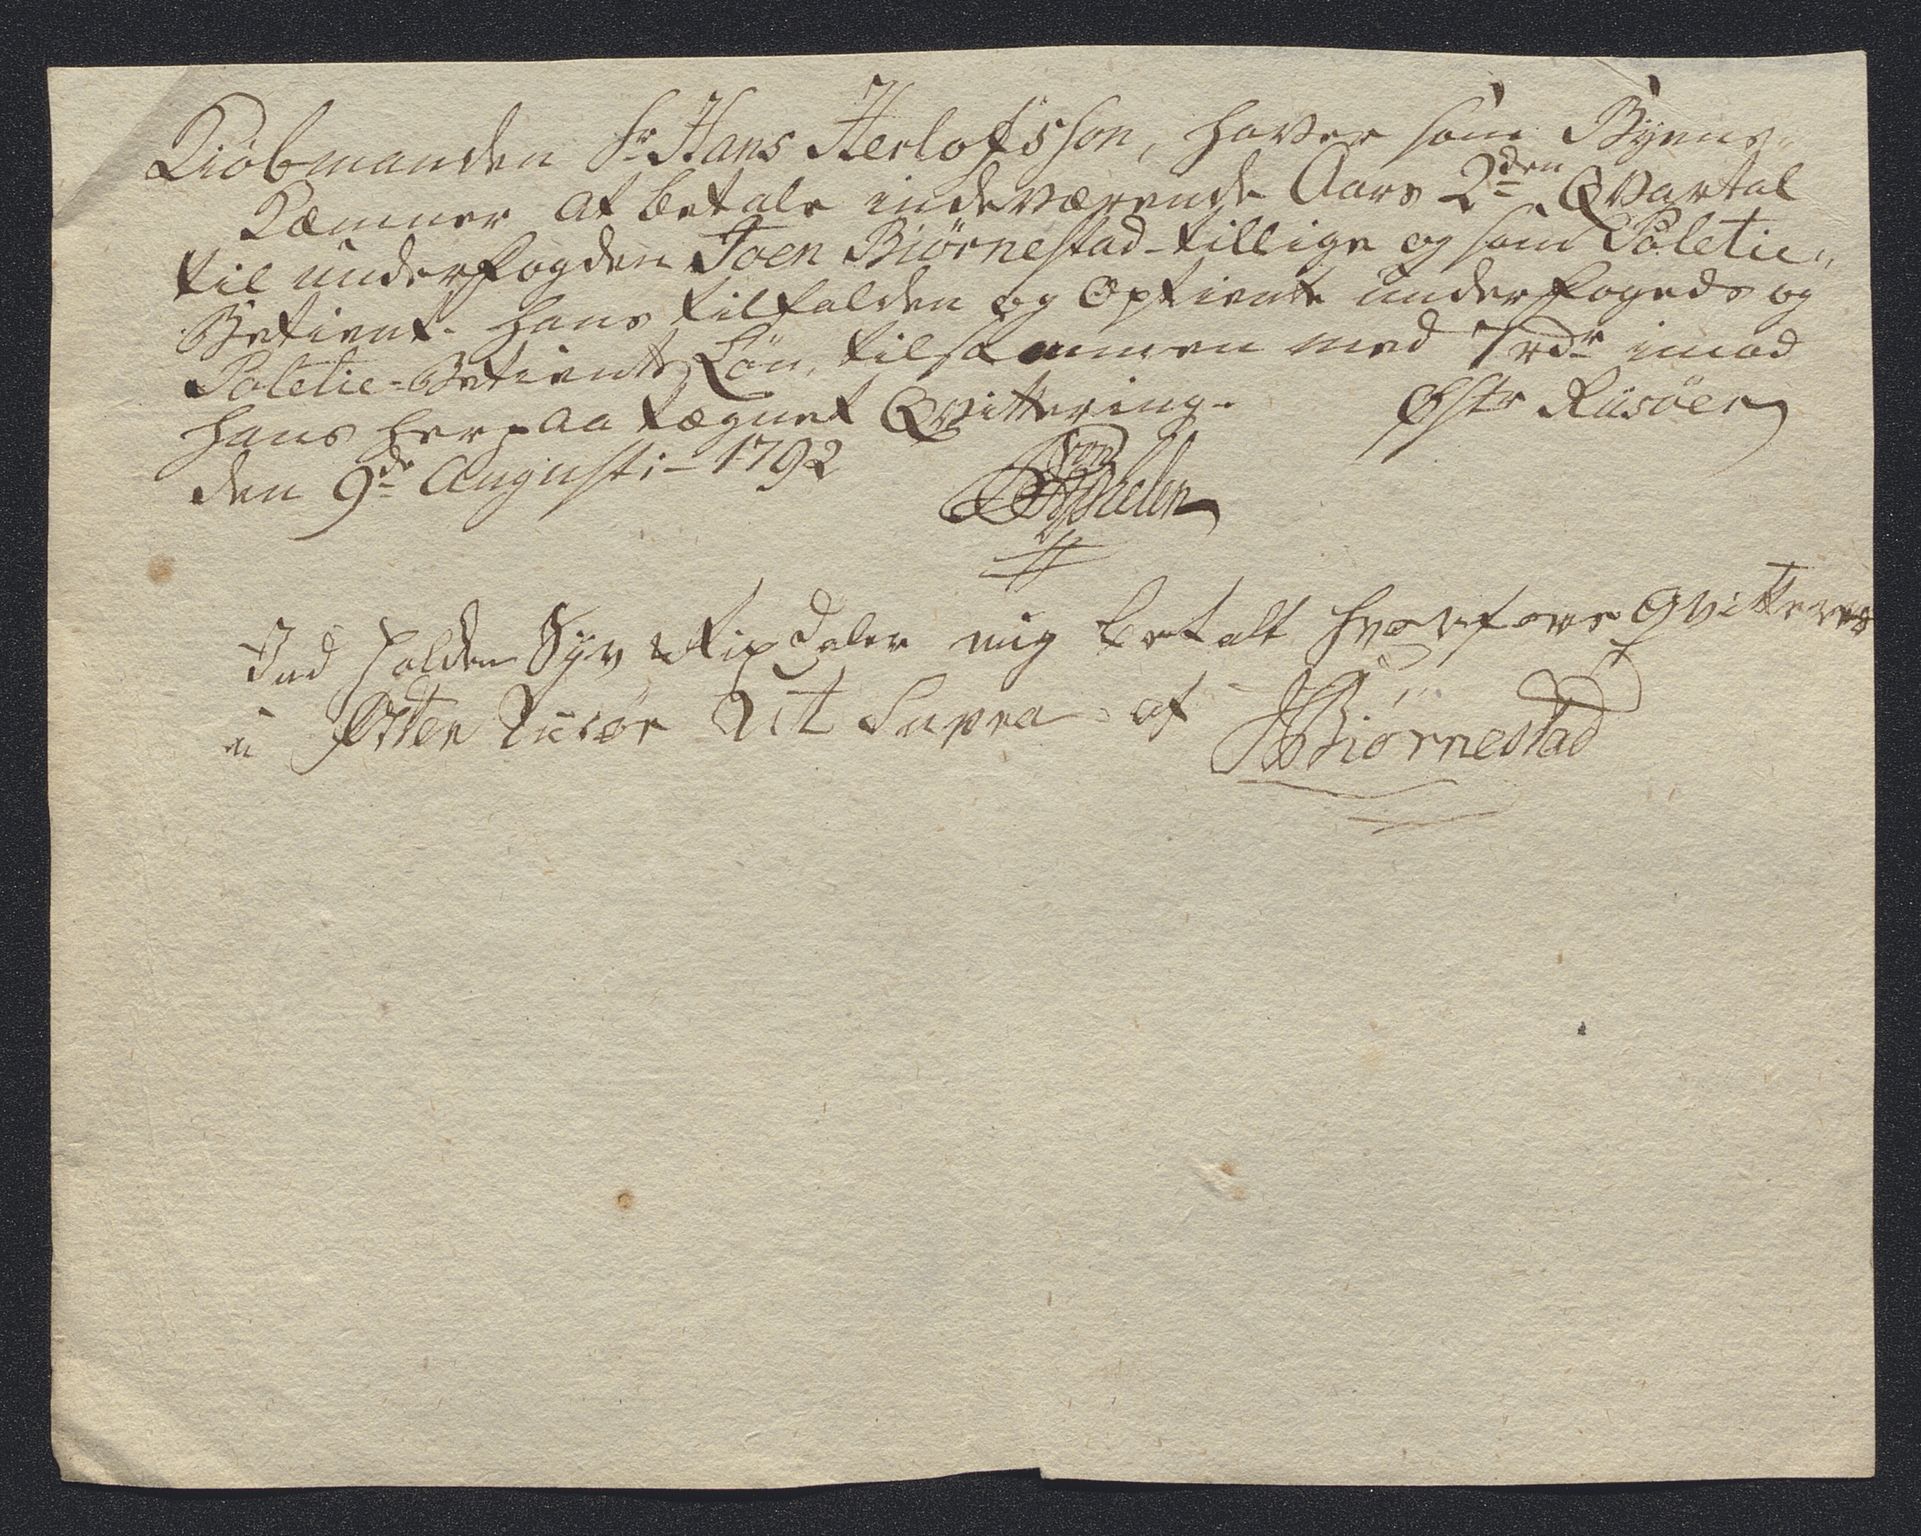 Kiöbmanden Sr Hans Herlofsson, haver som Byens-
Kæmner at betale indeværende Aars 2den Qvartal
til underfogden Joen Biörnestad tillige og som Poletie-
Betient- hans tilfalden og Optiente underfogeds og
Poletie-Betients Lön, tilsammen med 7 rdr imod
hans herpaa tægnet Qvittering- Östr Riisöer
den 9de Augusti- 1792
Ind holden Syv Rix daler mig betalt hvorfore qvitteres
Østen Riisør Ut Supra af JBiørnestad